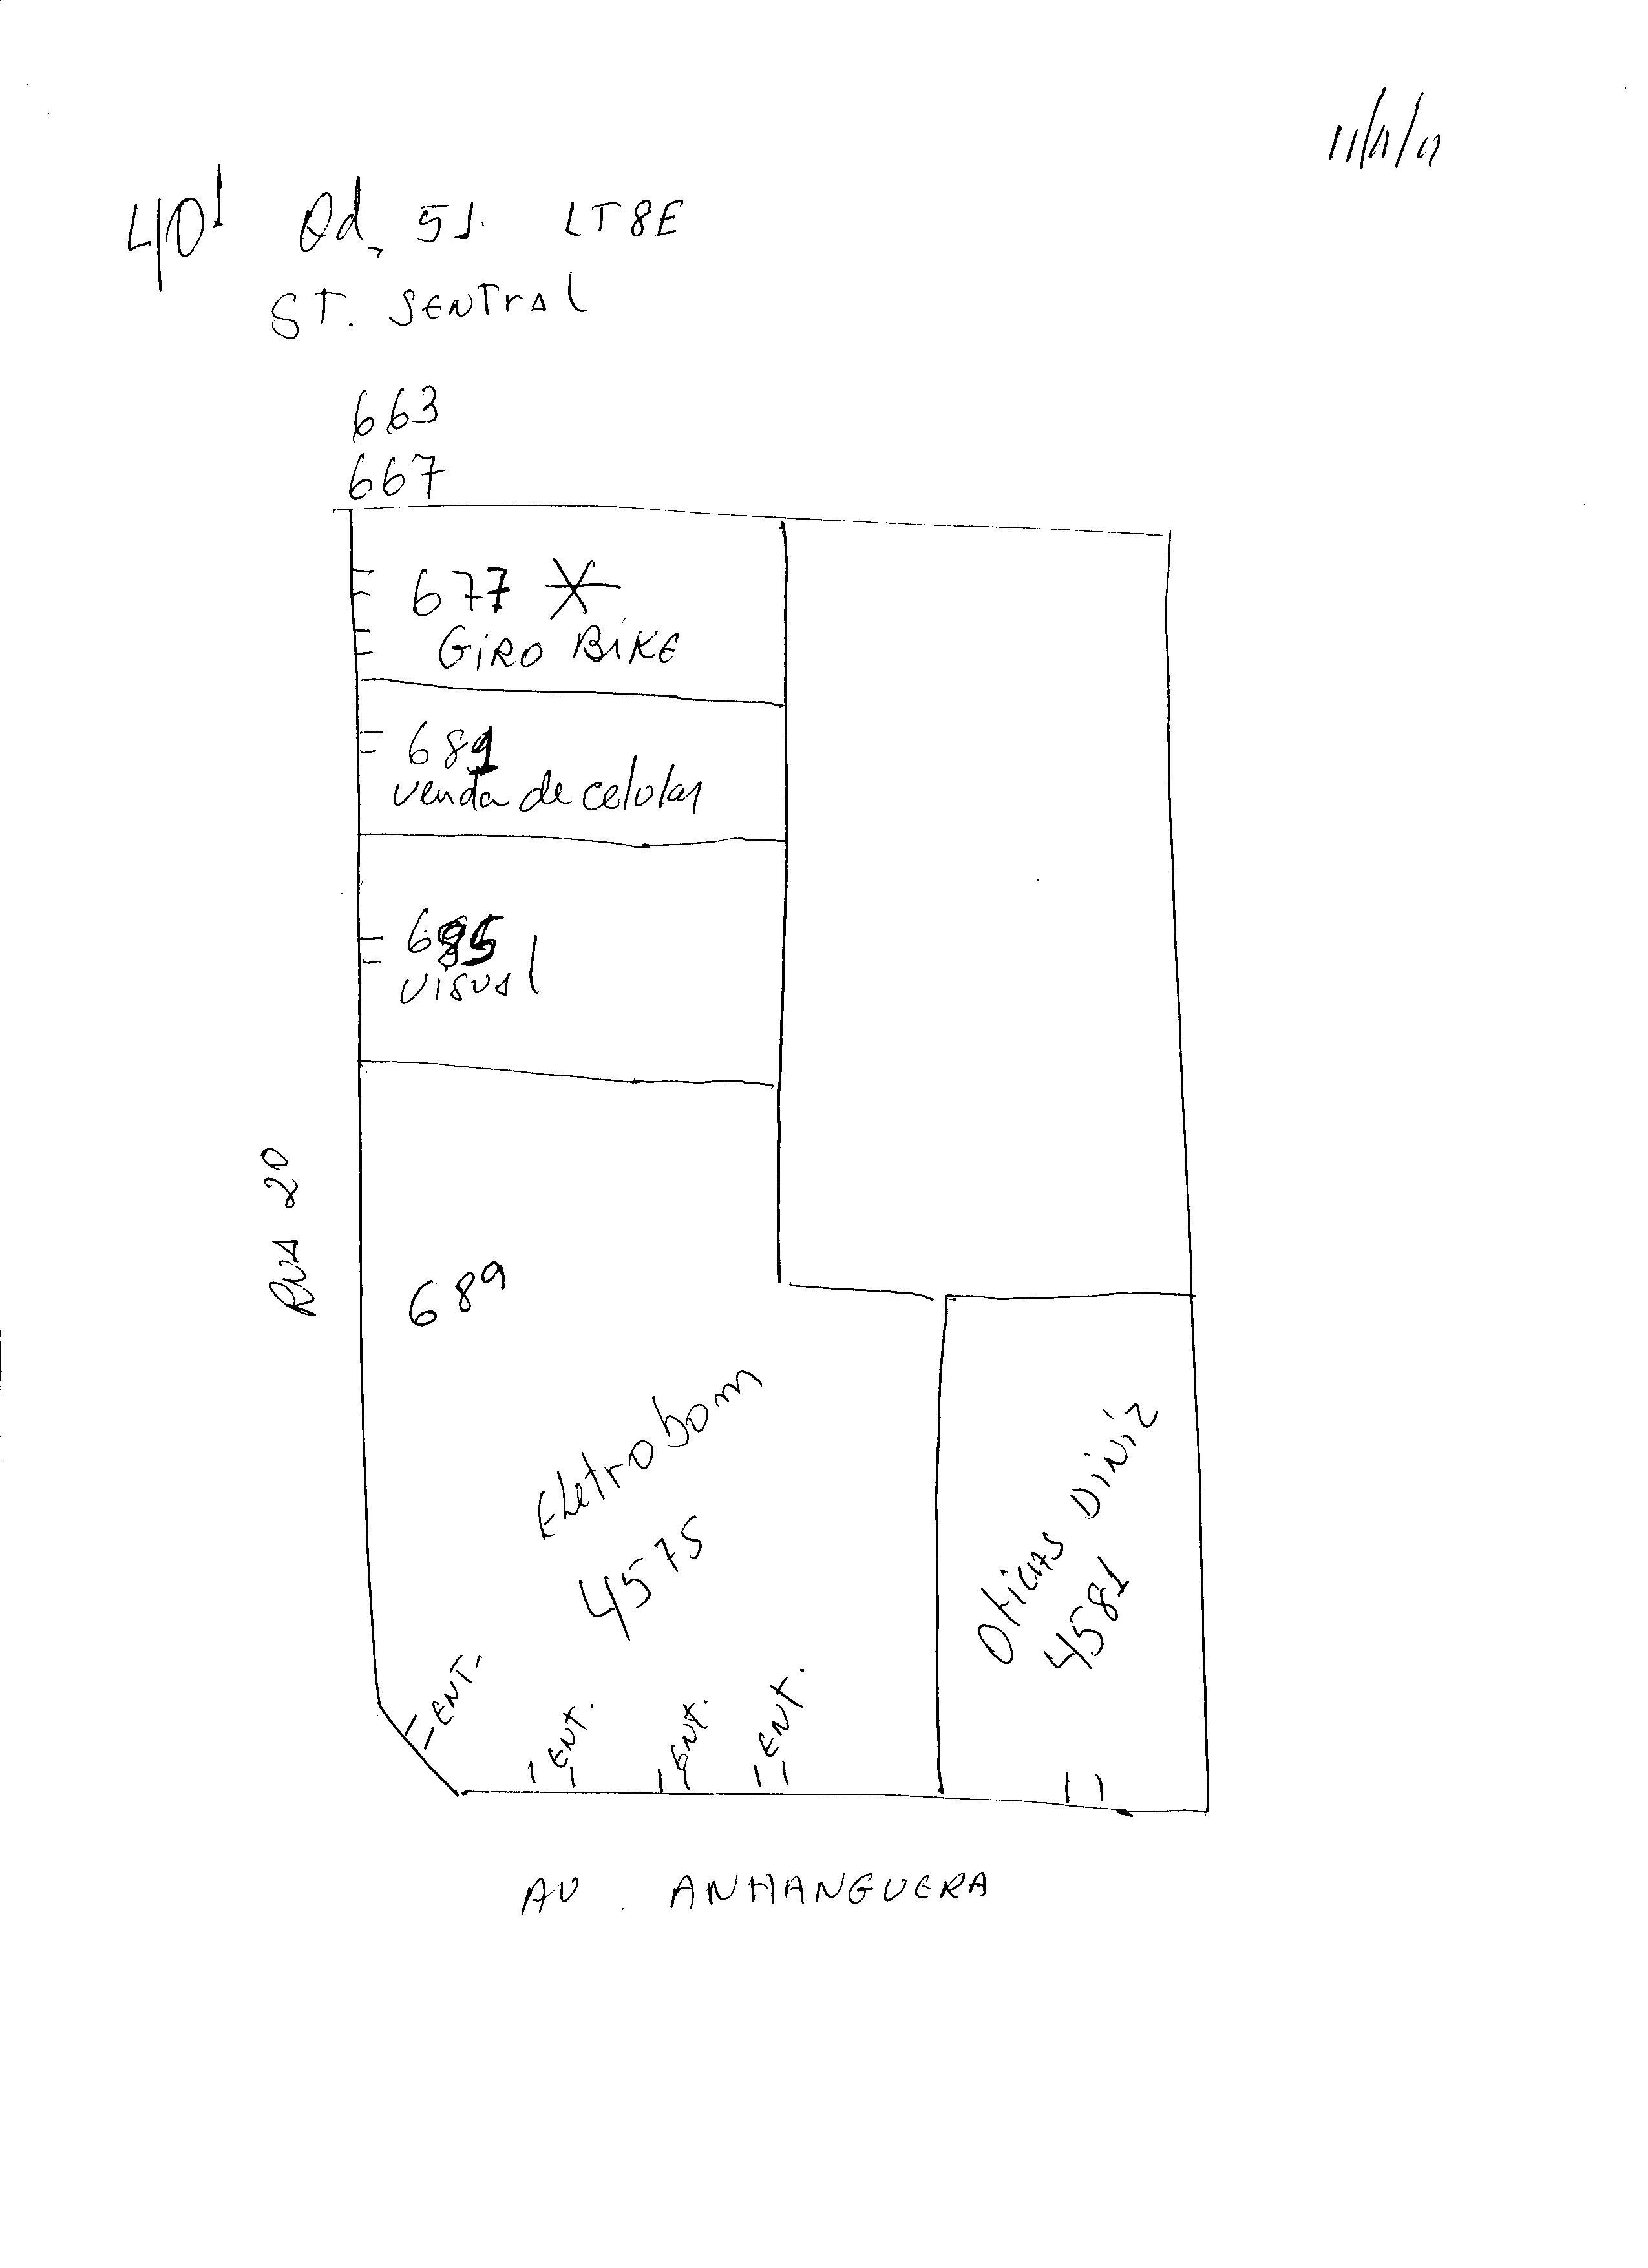 40! Qd, 51. LT8E
ST. SENTrAL
663
667
677
GiRO BiKE
681
venda de celular
685
visual
RUA 20
689
Eletrobom
4575
Oticas Diniz
4581
ENT.
ENT.
ENT.
ENT.
AV. ANHANGUERA